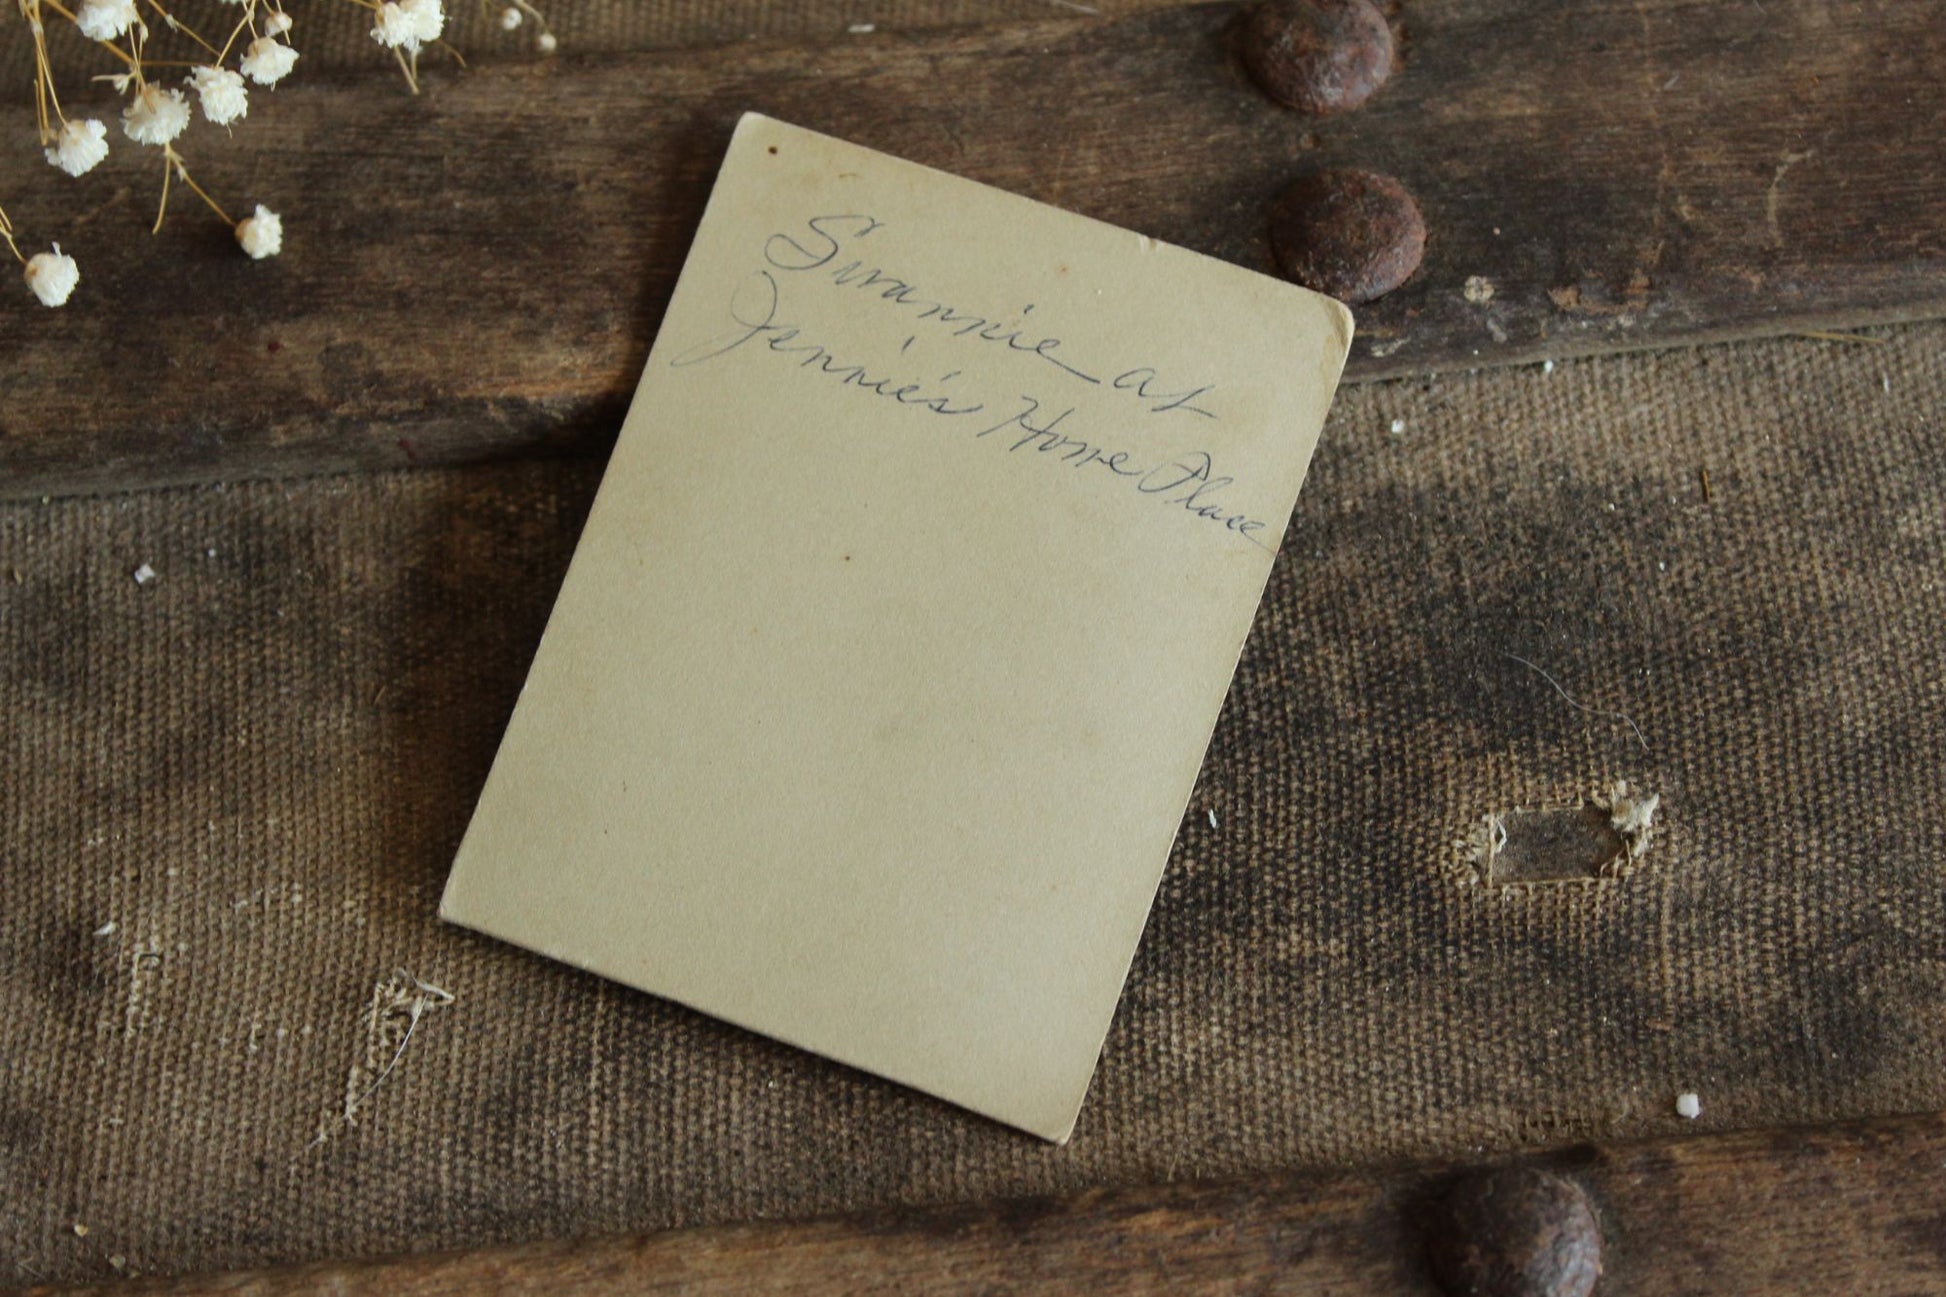 Swannie at
Jennie's Home Place